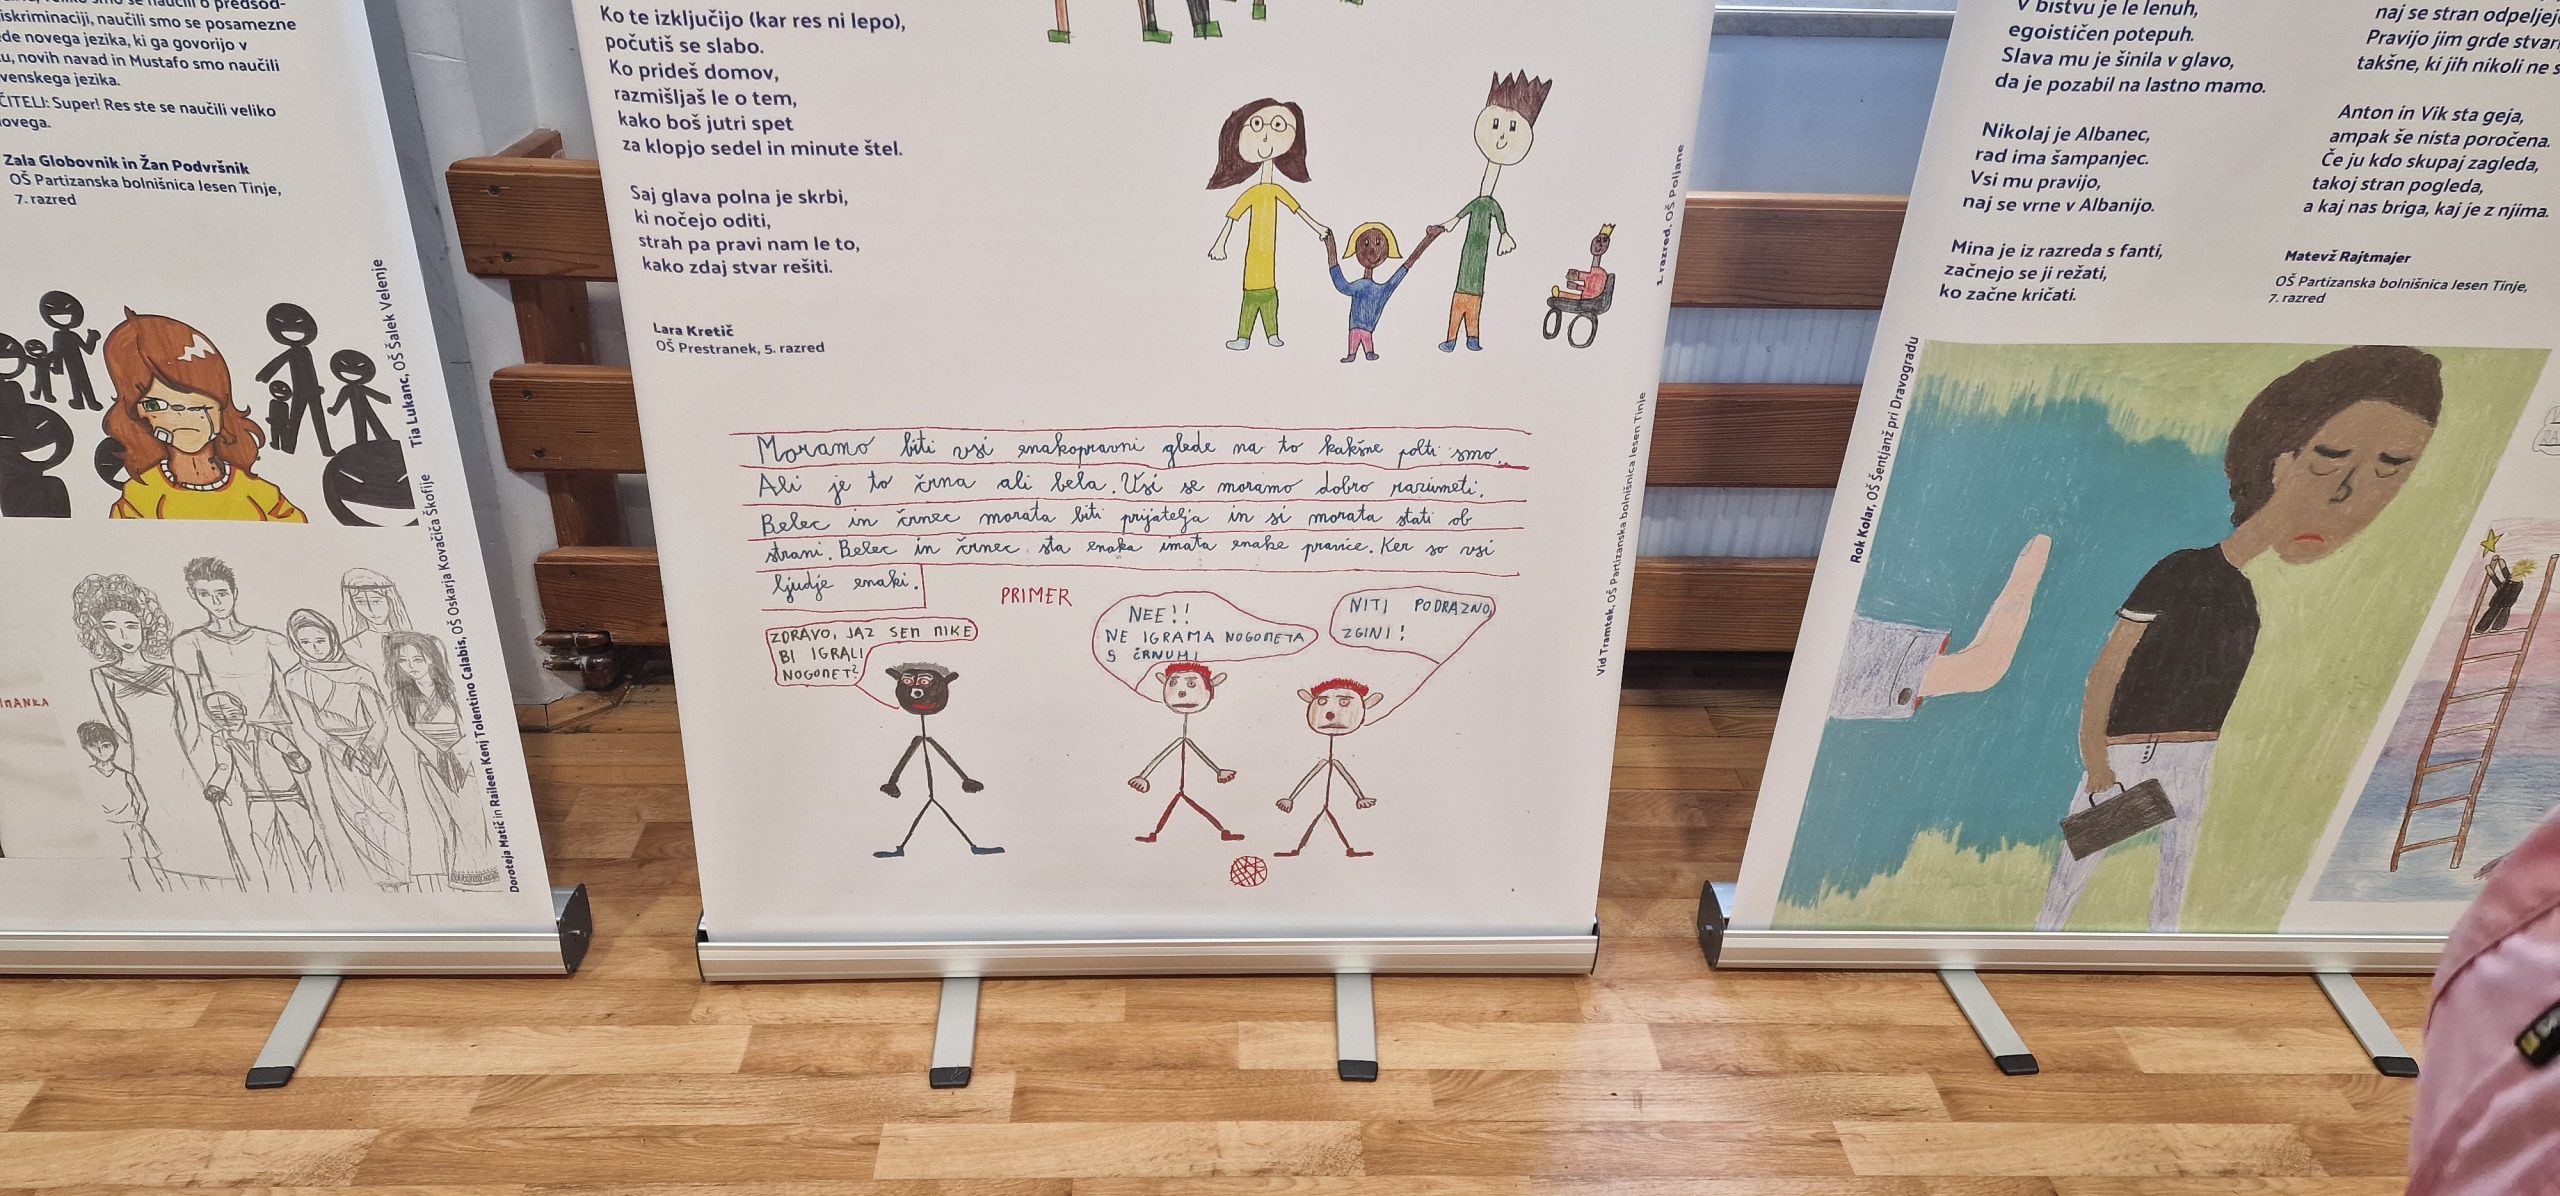 iskriminaciji, naučili smo se posamezne
de novega jezika, ki ga govorijo v
u, novih navad in Mustafo smo naučili
venskega jezika.
ČITELJ: Super! Res ste se naučili veliko
ovega.
Zala Globovnik in Žan Podvršnik
OŠ Partizanska bolnišnica Jesen Tinje,
7. razred
Tia Lukanc, OŠ Šalek Velenje
Doroteja Matič in Raileen Kenj Tolentino Calabis, OŠ Oskarja Kovačiča Škofije
Ko te izključijo (kar res ni lepo),
počutiš se slabo.
Ko prideš domov,
razmišljaš le o tem,
kako boš jutri spet
za klopjo sedel in minute štel.
Saj glava polna je skrbi,
ki nočejo oditi,
strah pa pravi nam le to,
kako zdaj stvar rešiti.
Lara Kretič
OŠ Prestranek, 5. razred
1. razred, OŠ Poljane
Moramo biti vsi enakopravni glede na to kakšne polti smo.
Ali je to črna ali bela. Vsi se moramo dobro razumeti.
Belec in črnec morata biti prijatelja in si morata stati ob
strani. Belec in črnec sta enaka imata enake pravice. Ker so vsi
ljudje enaki.
PRIMER
ZDRAVO, JAZ SEM MIKE
BI IGRALI
NOGOMET?
NEE!!
NE IGRAMA NOGOMETA
S ČRNUMI
NITI PODRAZNO,
ZGINI!
Vid Tramtek, OŠ Partizanska bolnišnica Jesen Tinje
V bistvu je le lenuh,
egoističen potepuh.
Slava mu je šinila v glavo,
da je pozabil na lastno mamo.
Nikolaj je Albanec,
rad ima šampanjec.
Vsi mu pravijo,
naj se vrne v Albanijo.
Mina je iz razreda s fanti,
začnejo se ji režati,
ko začne kričati.
naj se stran odpeljej
Pravijo jim grde stvari
takšne, ki jih nikoli ne s
Anton in Vik sta geja,
ampak še nista poročena.
Če ju kdo skupaj zagleda,
takoj stran pogleda,
a kaj nas briga, kaj je z njima.
Matevž Rajtmajer
OŠ Partizanska bolnišnica Jesen Tinje,
7. razred
Rok Kolar, OŠ Šentjanž pri Dravogradu